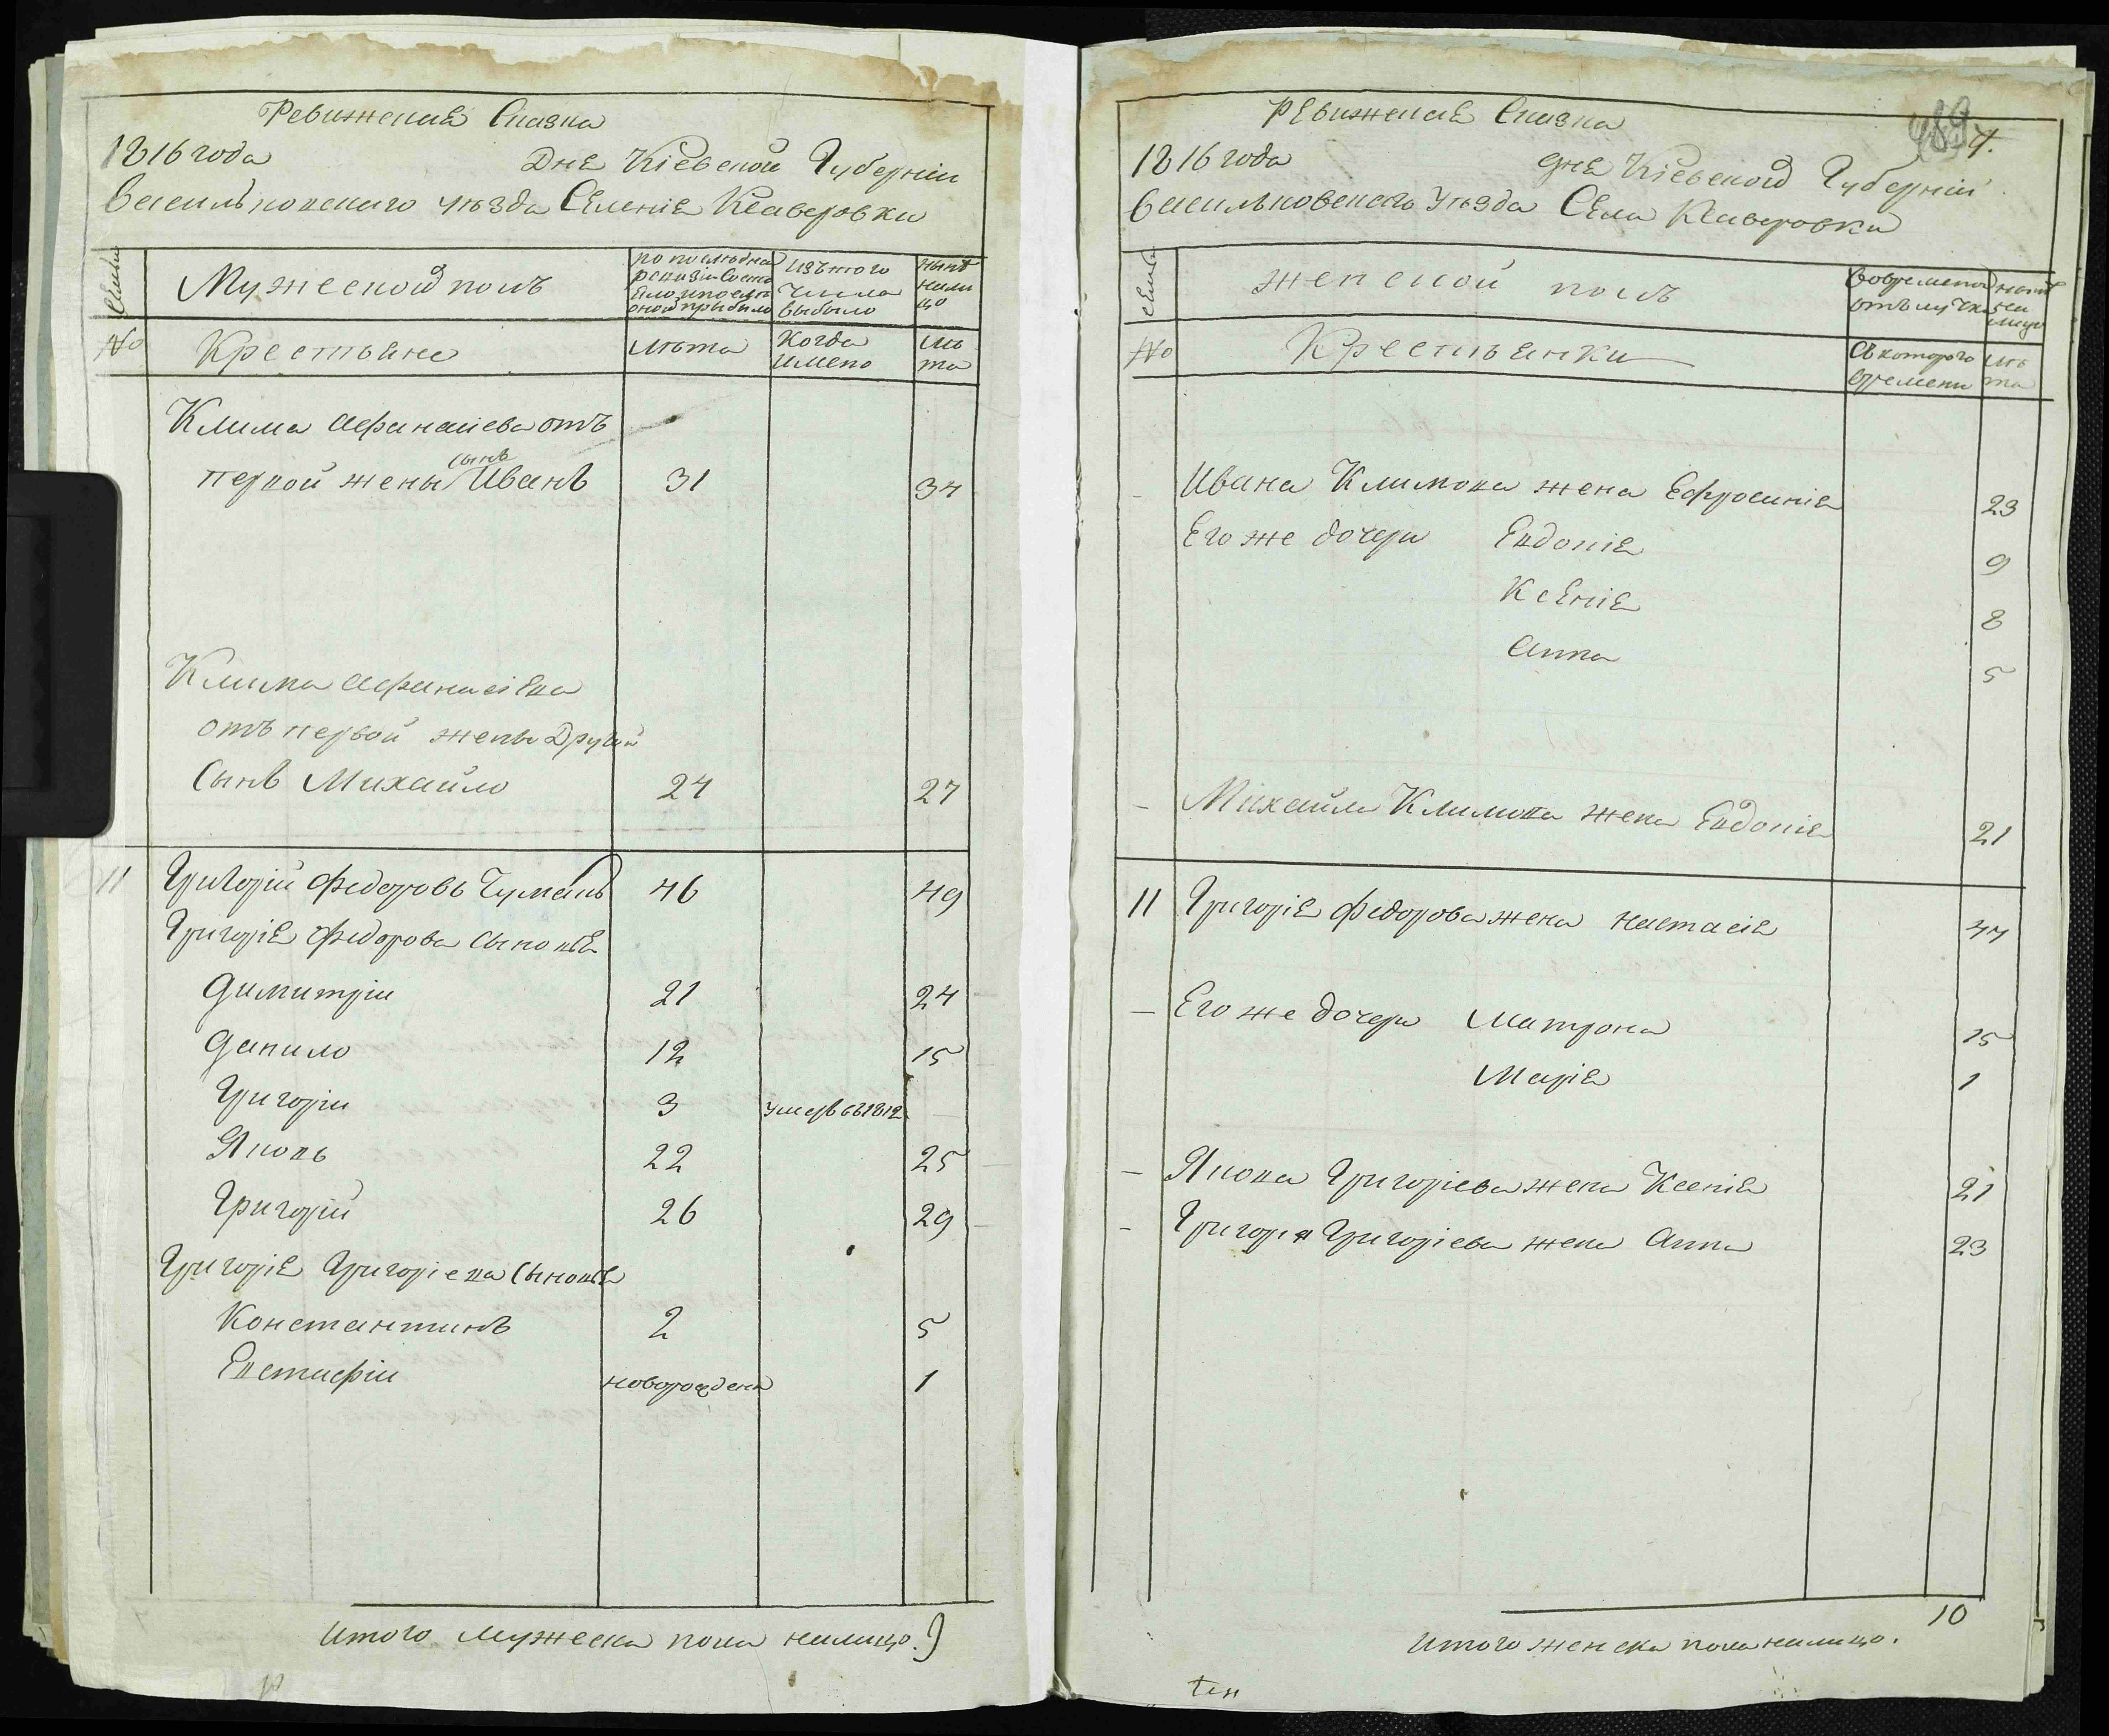 Ревижская Сказка
1816 года Дня Кіевской Губерніи
Васильковскаго уѣзда Селенія Ксаверовки
Семьи
Мужеской полъ
по послѣдней ревизіи состояло и после оной прибыло
Изъ того числа выбыло
Нынѣ на лицо
№
Крестьяне
лѣта
Когда имено
лѣта
Клима Афанасіева отъ
первой жены сынъ Иванъ 31 34
Клима Афанасіева
отъ первой жены Другий
Сынъ Михайло 24 27
11 Григорій Федоровъ Чумакъ 46 49
Григорія Федорова Сыновья
Димитрій 21 24
Данило 12 15
Григорій 3 умеръ въ 1812
Яковъ 22 25
Григорій 26 29
Григорія Григоріева Сыновья
Константинъ 2 5
Евстафій новорожденъ 1
Итого мужеска пола налицо. 9
Ревижская Сказка
489 4.
1816 года Дня Кіевской Губерніи
Васильковскаго Уѣзда Села Ксаверовки
Семьи
женской полъ
Во временной отълучке
нынѣ на лицо
№
Крестьянки
Съ которого времени
лѣта
- Ивана Климова жена Ефросинія 23
Его же дочери Евдокія 9
Ксенія 8
Анна 5
- Михайла Климова жена Евдокія 21
11 Григорія Федорова жена Настасія 44
- Его же дочери Матрона 15
Марія 1
- Якова Григоріева жена Ксенія 21
- Григорія Григоріева жена Анна 23
10
Итого женска пола налицо.